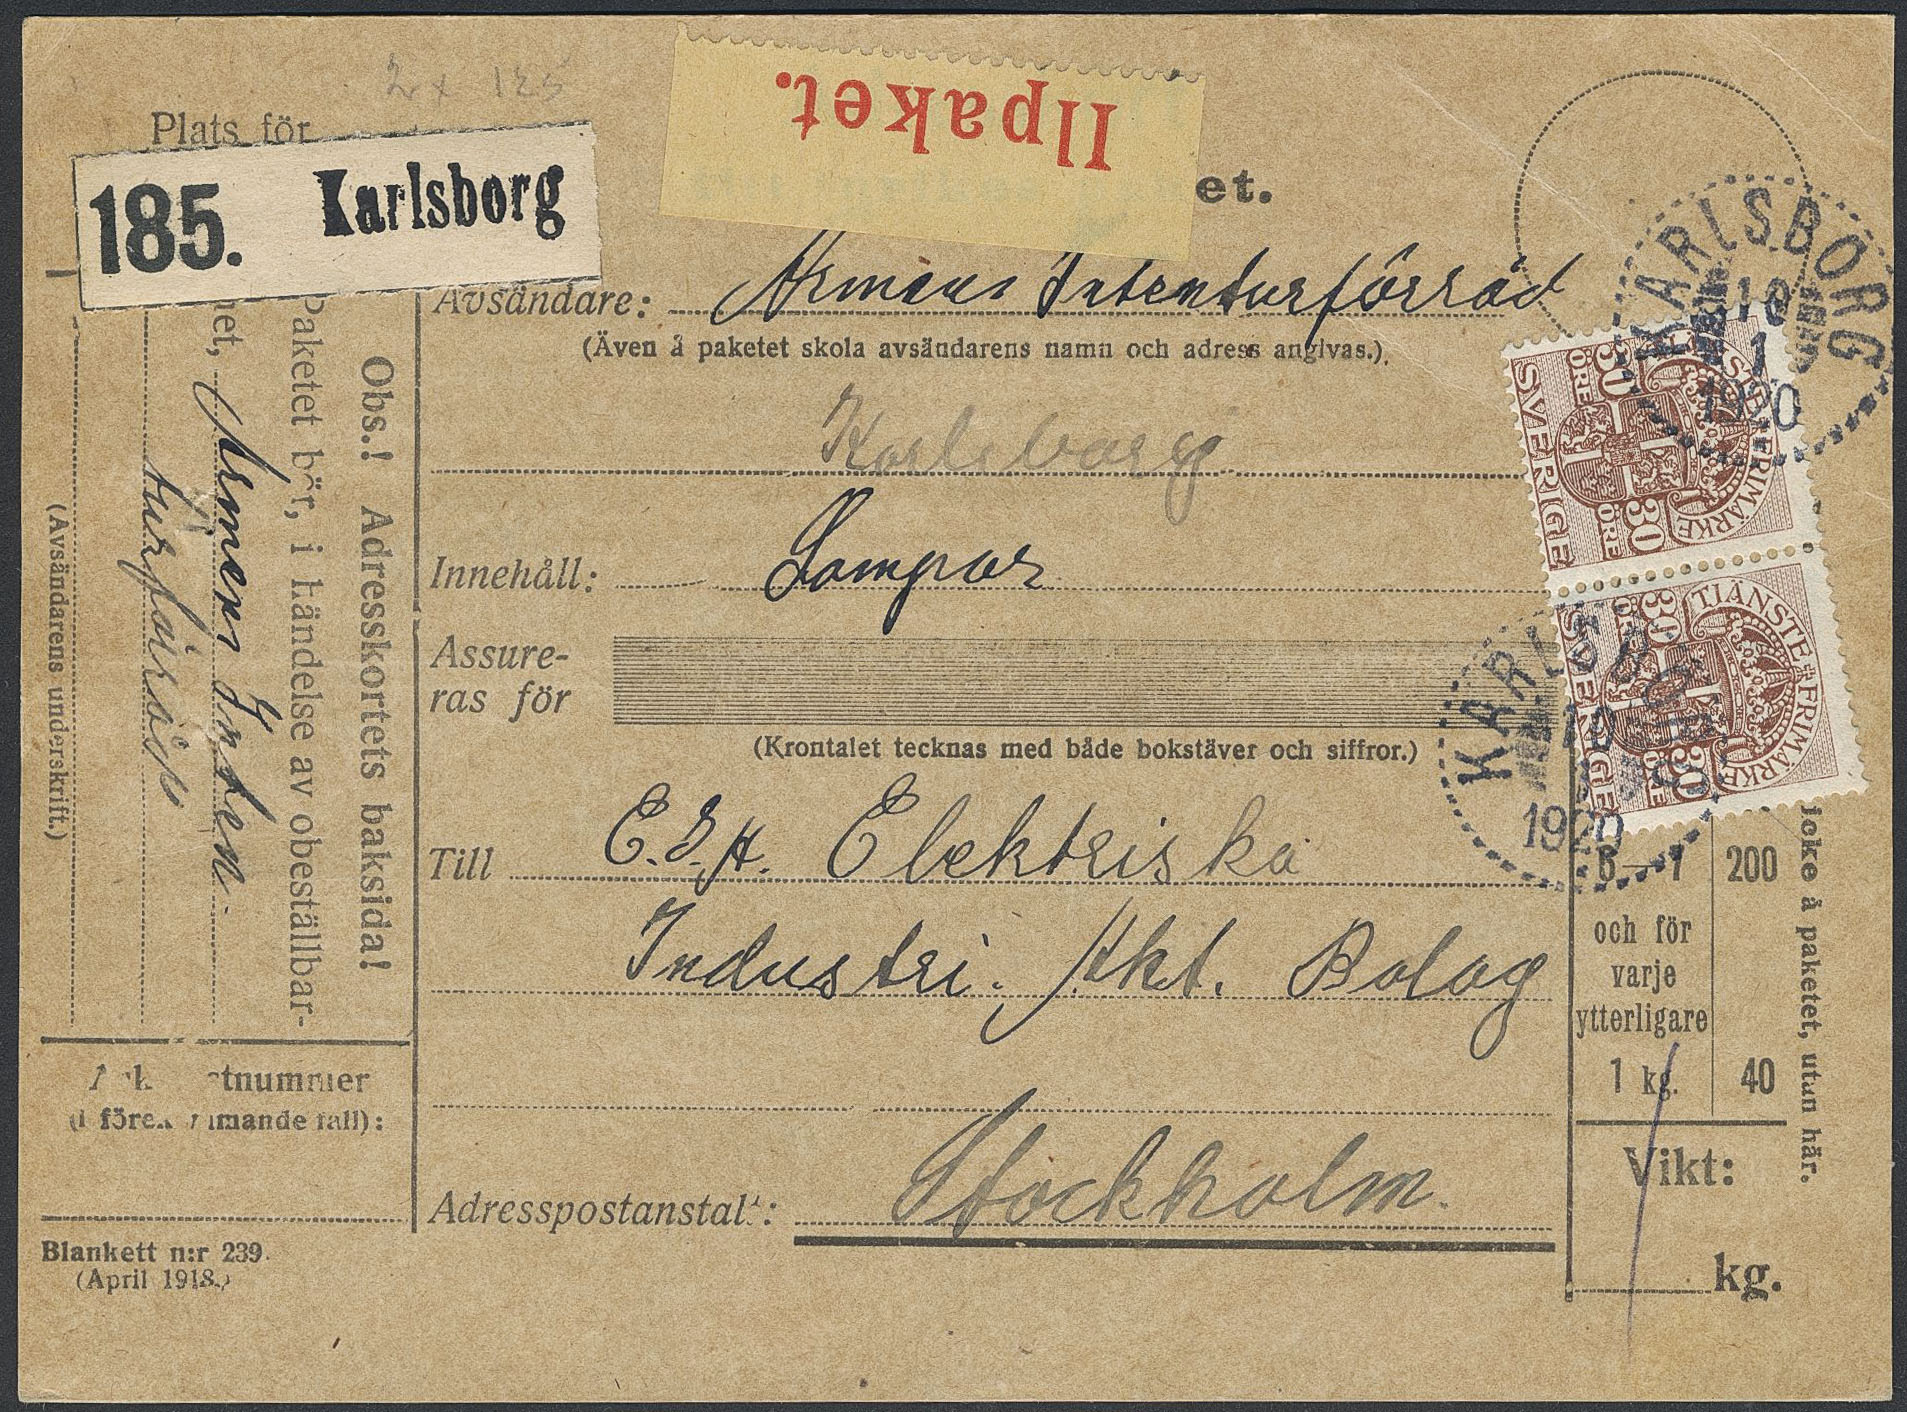 2 x 125
Plats för
185. Karlsborg
Ilpaket.
et.
Avsändare: Armens Intenturförråd
(Även å paketet skola avsändarens namn och adress angivas.).
Karlsborg
Innehåll: Lampor
Assure-
ras för
(Krontalet tecknas med både bokstäver och siffror.)
Till E.I.A. Elektriska
Industri. Akt. Bolag
Adresspostanstalt: Stockholm.
Obs.! Adresskortets baksida!
Paketet bör, i händelse av obeställbar-
het, Armens Inten-
turförråd
(Avsändarens underskrift.)
tnummer
(i förekommande fall):
Blankett n:r 239.
(April 1918.)
KARLSBORG
10
1
1920
TJÄNSTE FRIMÄRKE
30 ÖRE 30 ÖRE
SVERIGE
TJÄNSTE FRIMÄRKE
30 ÖRE 30 ÖRE
SVERIGE
KARLSBORG
10
1
1920
200
och för
varje
ytterligare
1 kg. 40
icke å paketet, utan här.
Vikt:
1
kg.